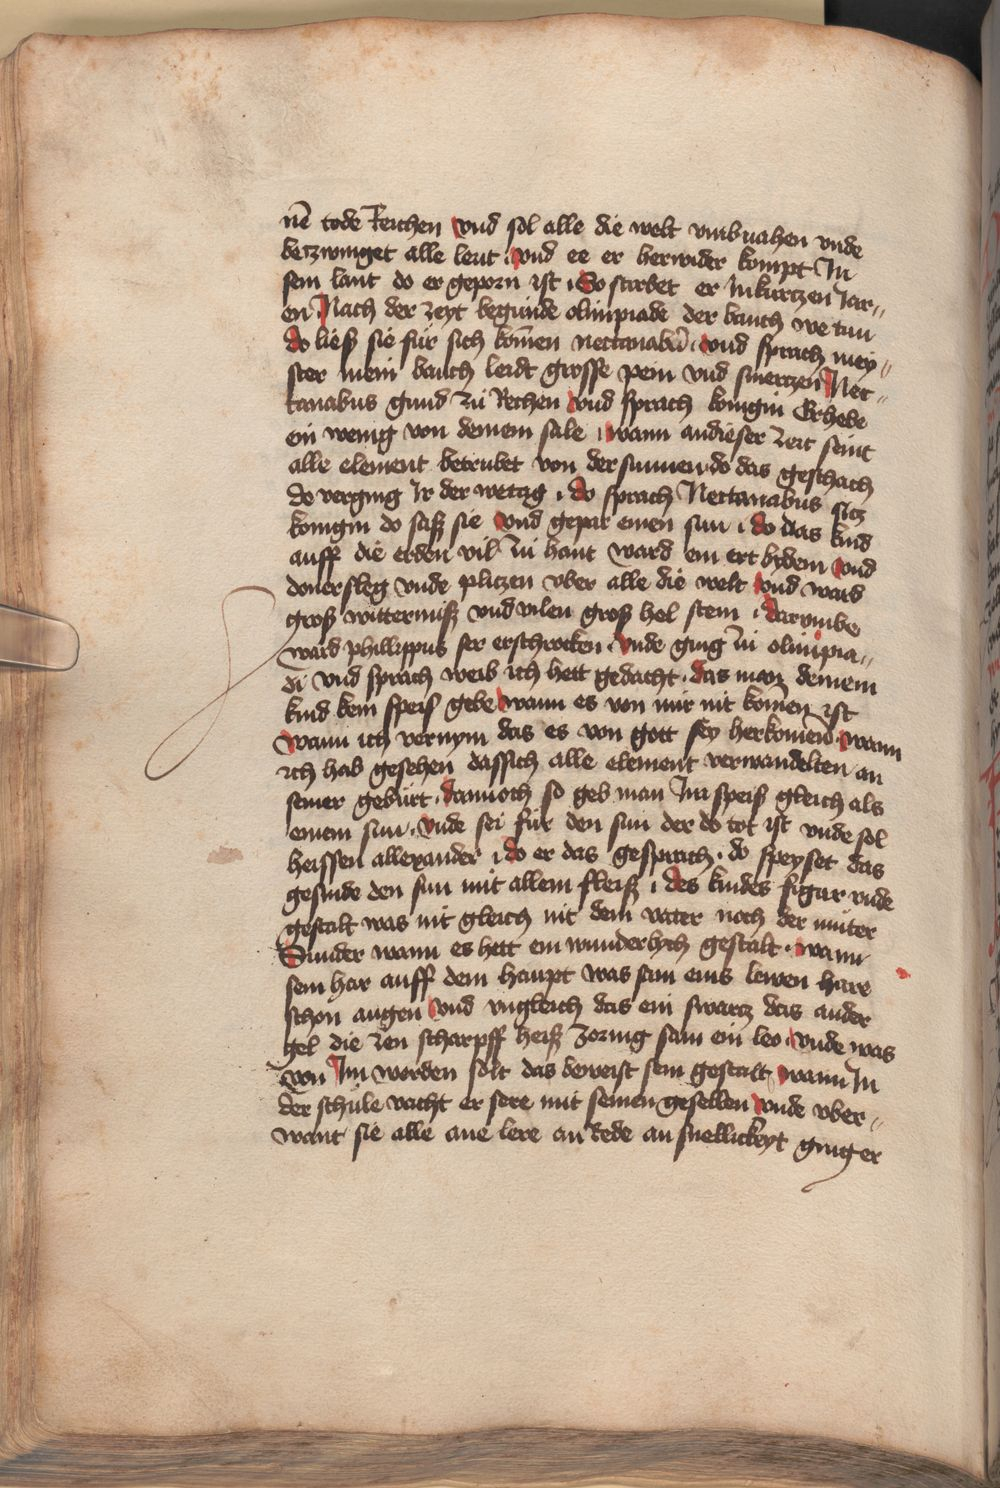 nē tode Reichen vnd sol alle die welt vmbuahen vnde
betzwinget alle leut · vnd ee er herwider kompt In
sein lant do er geporn ist · So starbet er Inkurtzen Jar„
en Nach der zeyt begunde olimpiade der bauch we tun
do ließ sie für sich komen nectanabū · vnd sprach mey„
ster mein bauch leidt grosse pein vnd smertzen Nec„
tanabus gund zu Rechen vnd sprach konigin Erhebe
ein wenig von deinem sale · wann andieser zeit seint
alle element betrubet von der sunnen · do das geschach
do verging Ir der wetag · do sprach Nectanabus sitz
konigin do saß sie vnd gepar einen sun · do das kind
auff die erden vil zu hant ward ein ert bydem vnd
donersleg vnde plitzen vber alle die welt vnd ward
groß witterniß vnd vilen groß hel stein · darumbe
ward phillippus ser erschrocken · vnde ging zu olimpia„
di vnd sprach weib ich hett gedacht · das man deinem
kind kein speiß gebe wann es von mir nit komen ist
wann ich vernym das es von gott sey herkomen · wann
ich hab gesehen dassich alle element verwandelten an
seiner geburt · dannoch so geb man Im speiß gleich als
einem sun · vnde sei für den sun der do tot ist vnde sol
heissen allexander · do er das gesprach · do speyset das
gesinde den sun mit allem fleiß · des kindes figur vnde
gestalt was nit gleich nit dem vater noch der muter
Sunder wann es hett ein wunderlych gestalt · wann
sein har auff dem haupt was sam eins lewen hare
schon augen vnd vngleich das ein swartz das ander
gel die zen scharpff heiß zornig sam ein leo · vnde was
von Im werden solt das beweist sein gestalt wann In
der schule vacht er sere mit seinen gesellen vnde vber„
want sie alle ane lere an Rede an snellickeyt ging er